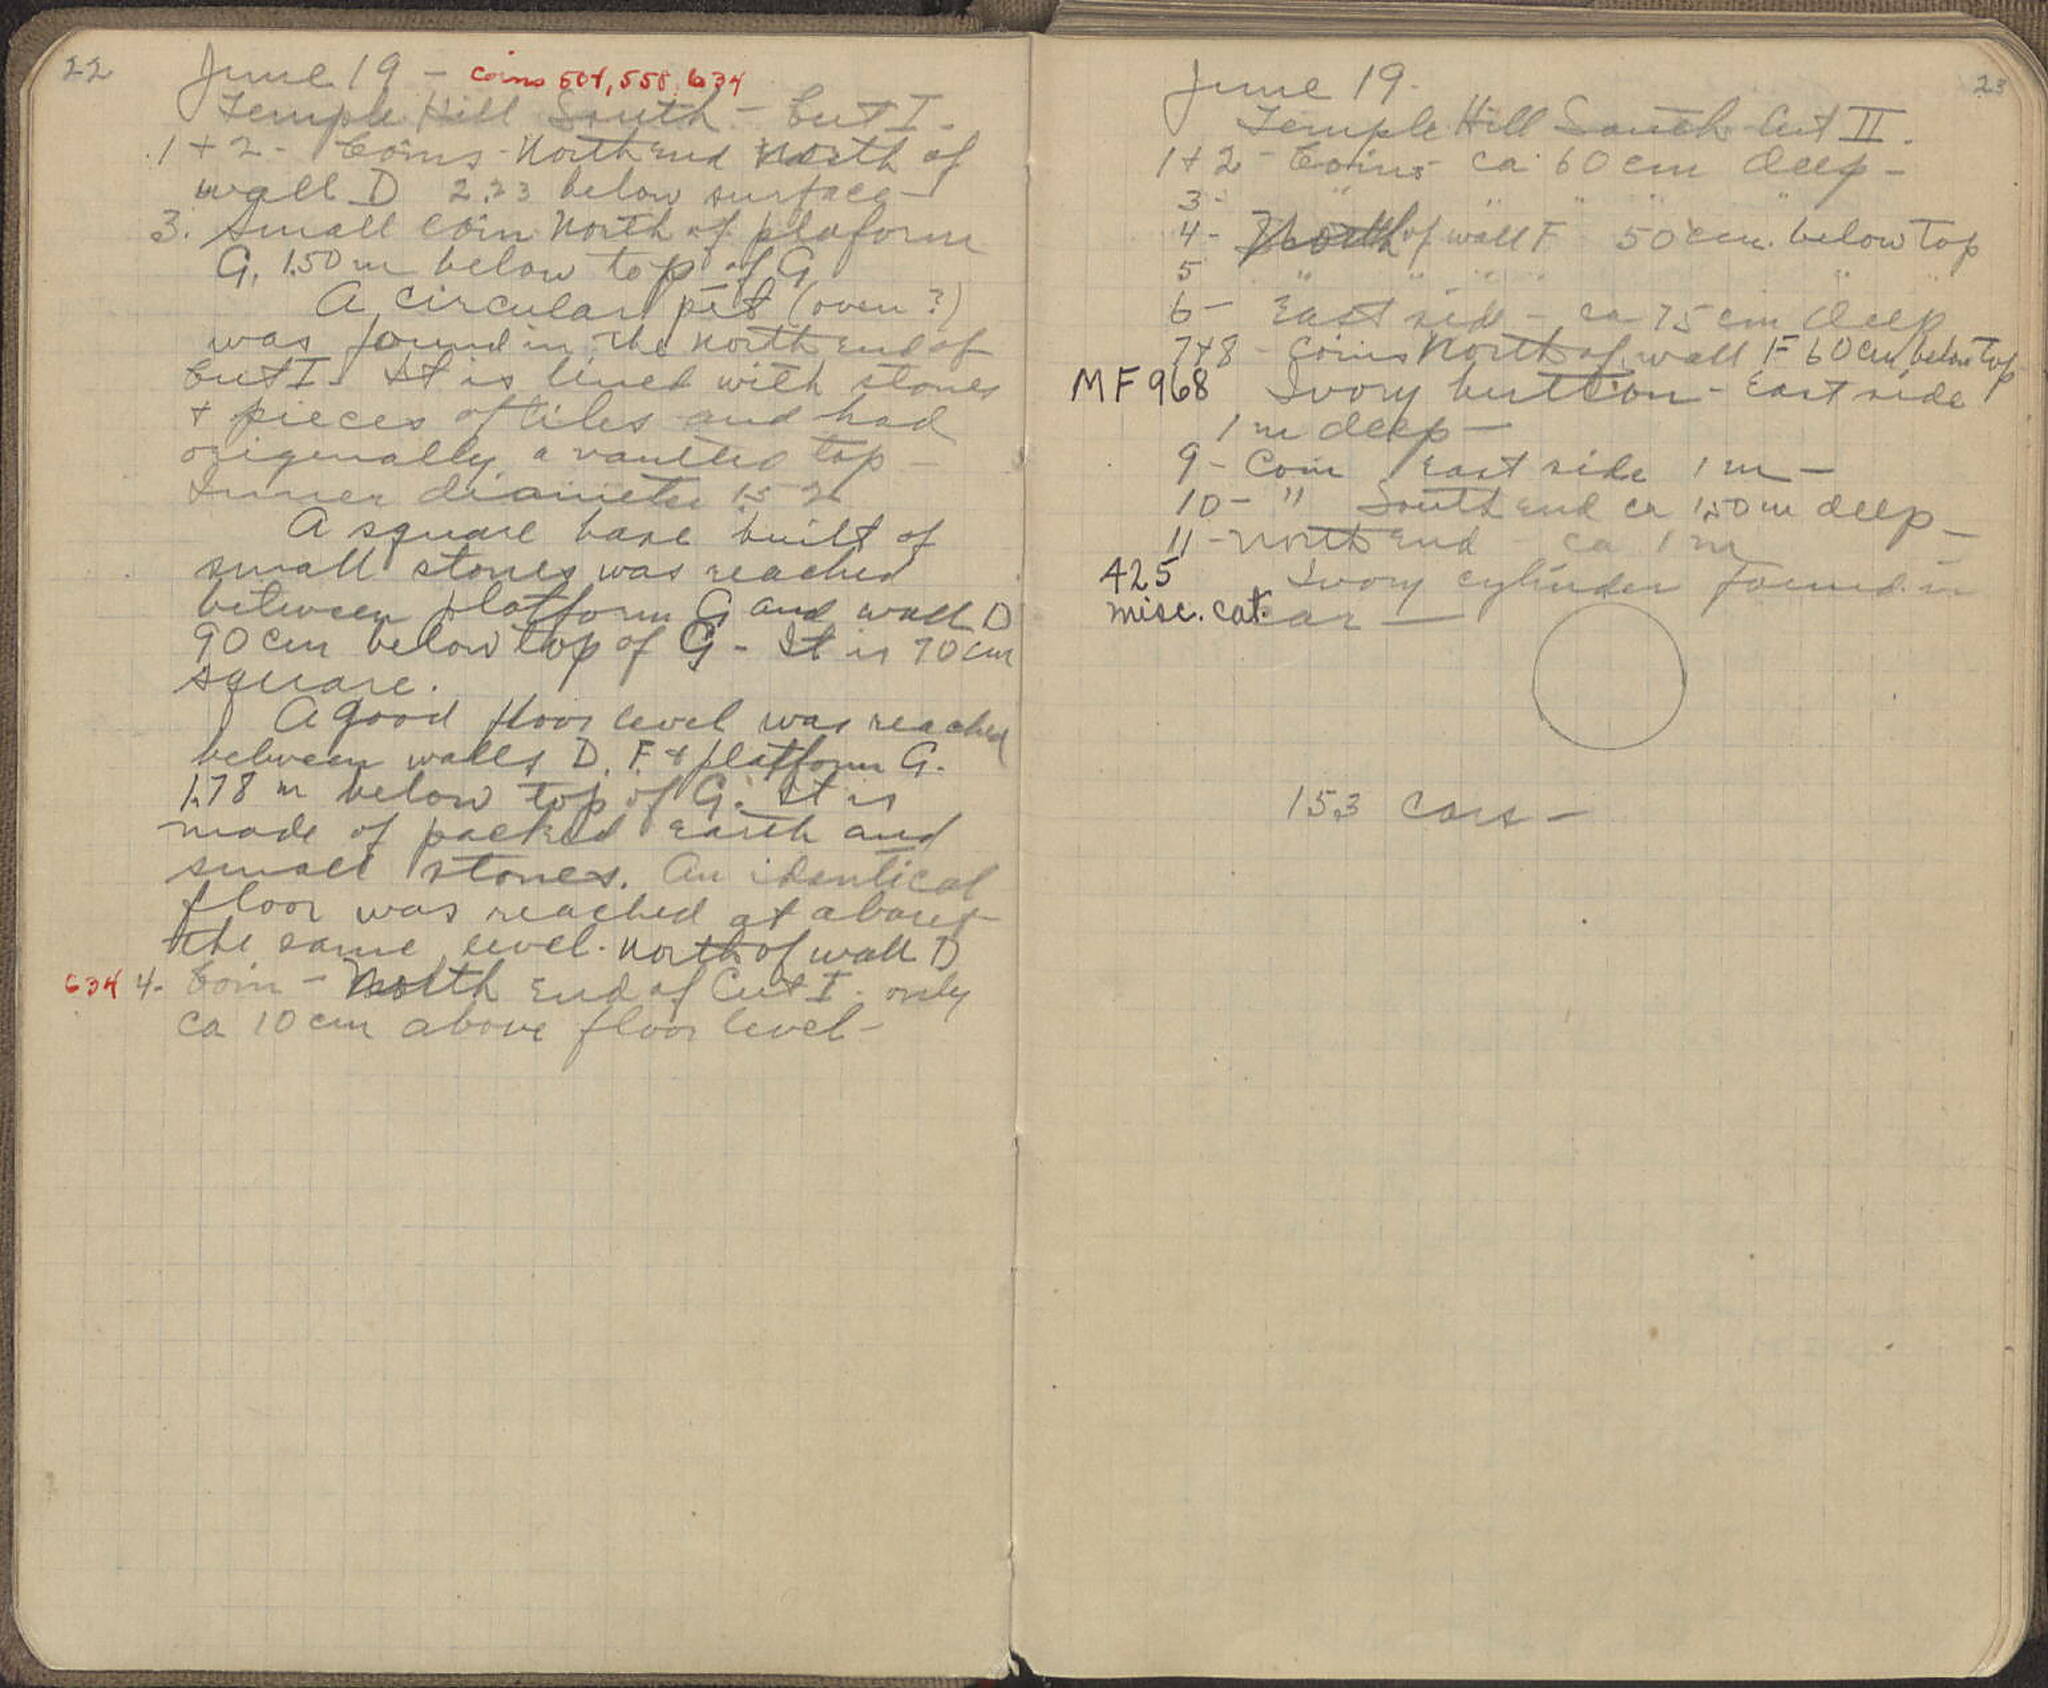 22
June 19 - coins 504, 558, 634
Temple Hill South - Cut I -
1 + 2 - Coins - North end North of
wall D 2.23 below surface -
3. Small coin North of plaform
G, 1.50 m below top of G
A circular pit (oven?)
was found in the north end of
Cut I - It is lined with stones
+ pieces of tiles and had
originally a vaulted top -
Inner diameter 1.52
A square base built of
small stones was reached
between platform G and wall D
90 cm below top of G - It is 70 cm
square.
A good floor level was reached
between walls D, F + platform G.
1.78 m below top of G. It is
made of packed earth and
small stones. An identical
floor was reached at about
the same level. North of wall D
634 4- Coin - North end of Cut I - only
ca 10 cm above floor level -
23
June 19.
Temple Hill South Cut II.
1 + 2 - Coins - ca 60 cm deep -
3 - " " " " "
4 - North of wall F 50 cm. below top
5 " " " " " "
6 - East side - ca 75 cm deep
7 + 8 - Coins North of wall F 60 cm below top
MF 968 Ivory button - East side
1 m deep -
9 - Coin East side 1 m -
10 - " South end ca 1.50 m deep -
11 - North end - ca 1 m
425 Ivory cylinder found in
misc. cat. car -
153 cars -